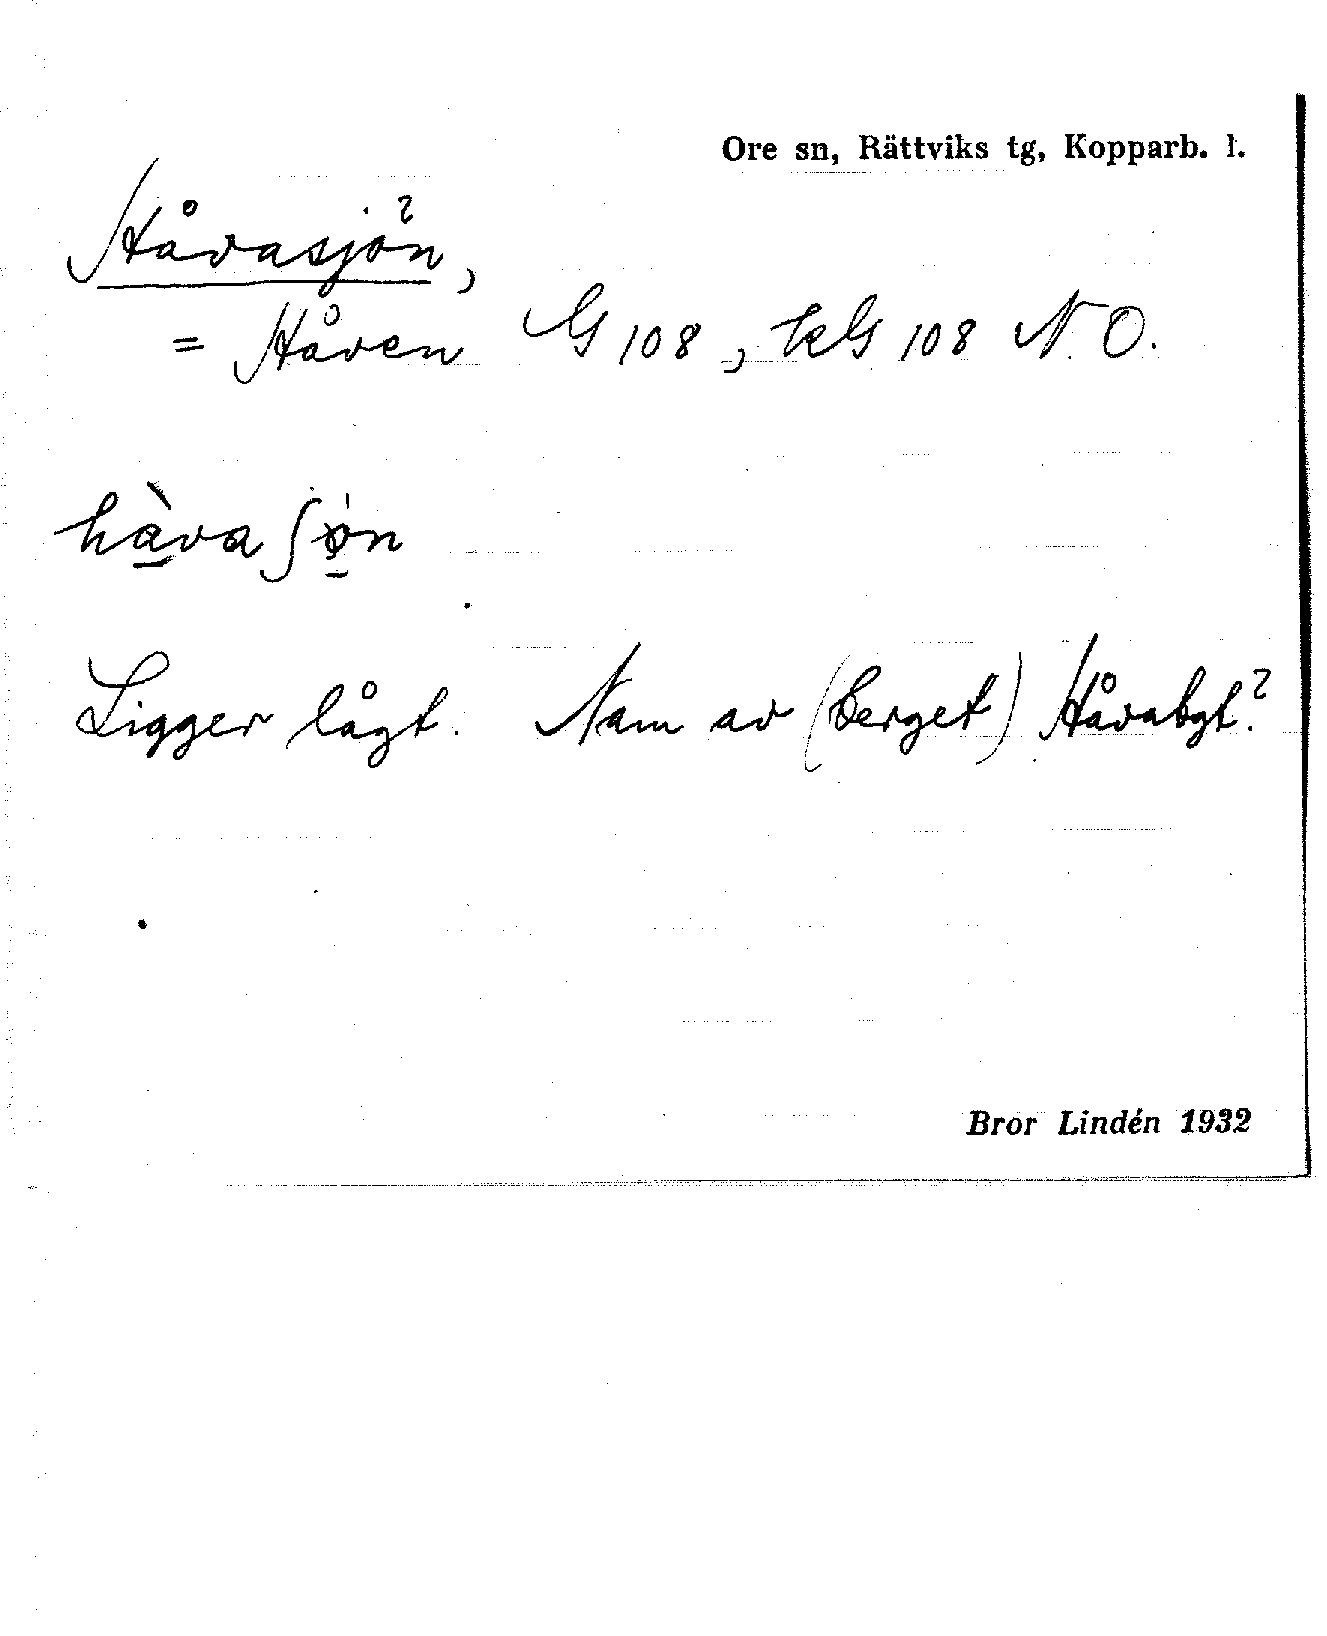 Ore sn, Rättviks tg, Kopparb. l.
Håvasjön,
= Håven G 108, kG 108 N.O.
hàvaʃøn
Ligger lågt. Nam av (berget) Håvabgt?
Bror Lindén 1932